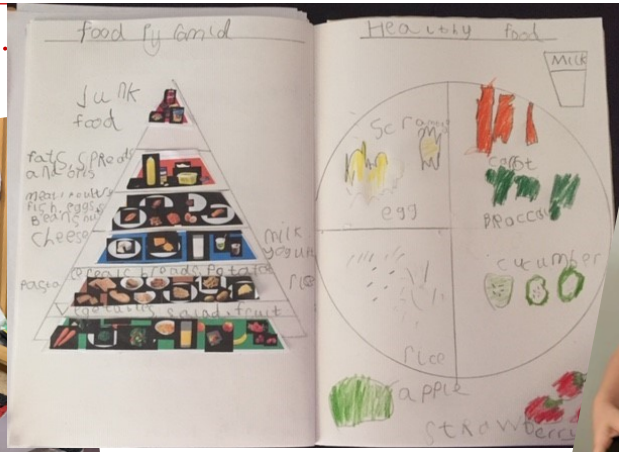 food Pyramid
junk
food
fats, spreads
and oils
meat, poultry
fish, eggs,
Beans, nuts
cheese
milk
yogurt
cereals breads, potatoes
Pasta
rice
Vegetables, salad, fruit
Healthy food
MILK
scram
egg
carrot
BRoccoli
cucumber
rice
apple
strawberry